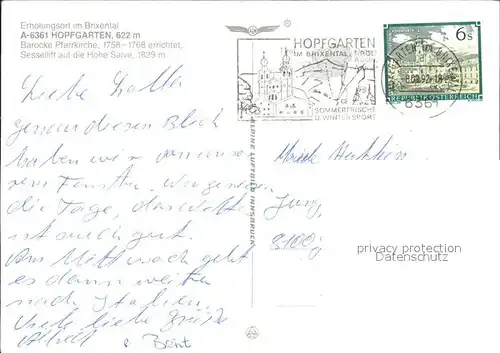 Erholungsort im Brixental
A-6361 HOPFGARTEN, 622 m
Barocke Pfarrkirche, 1758-1768 errichtet,
Sessellift auf die Hohe Salve, 1829 m
HOPFGARTEN
IM BRIXENTAL, TIROL
SOMMERFRISCHE
U. WINTERSPORT
6361
6 s
REPUBLIK ÖSTERREICH
ALPINE LUFTBILD INNSBRUCK
Liebe
genau diesen Blick
haben wir von unse
rem Fenster. Wir geniessen
die Tage, das Wetter
ist auch gut.
Am Mittwoch geht
es dann weiter
nach Italien.
Viele liebe Grüße
privacy protection
Datenschutz